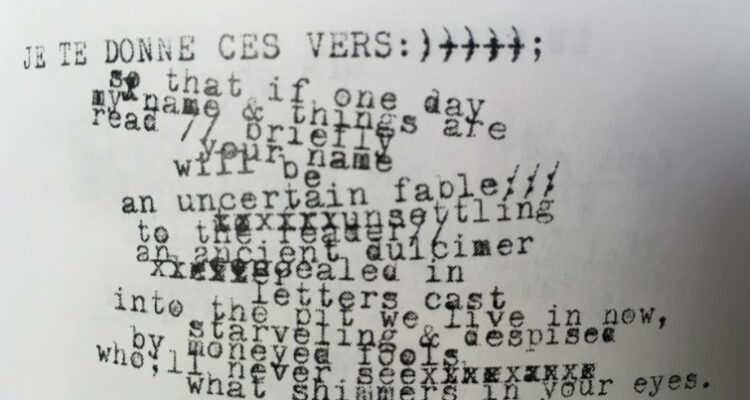 JE TE DONNE CES VERS:)))));
so that if one day
my name & things are
read // briefly
your name
will be
an uncertain fable///
xxxxxxxunsettling
to the reader//
an ancient dulcimer
xxxxx repealed in
letters cast
into the pit we live in now,
starveling & despised
by moneyed fools
who'll never see xxxxxxxxx
what shimmers in your eyes.